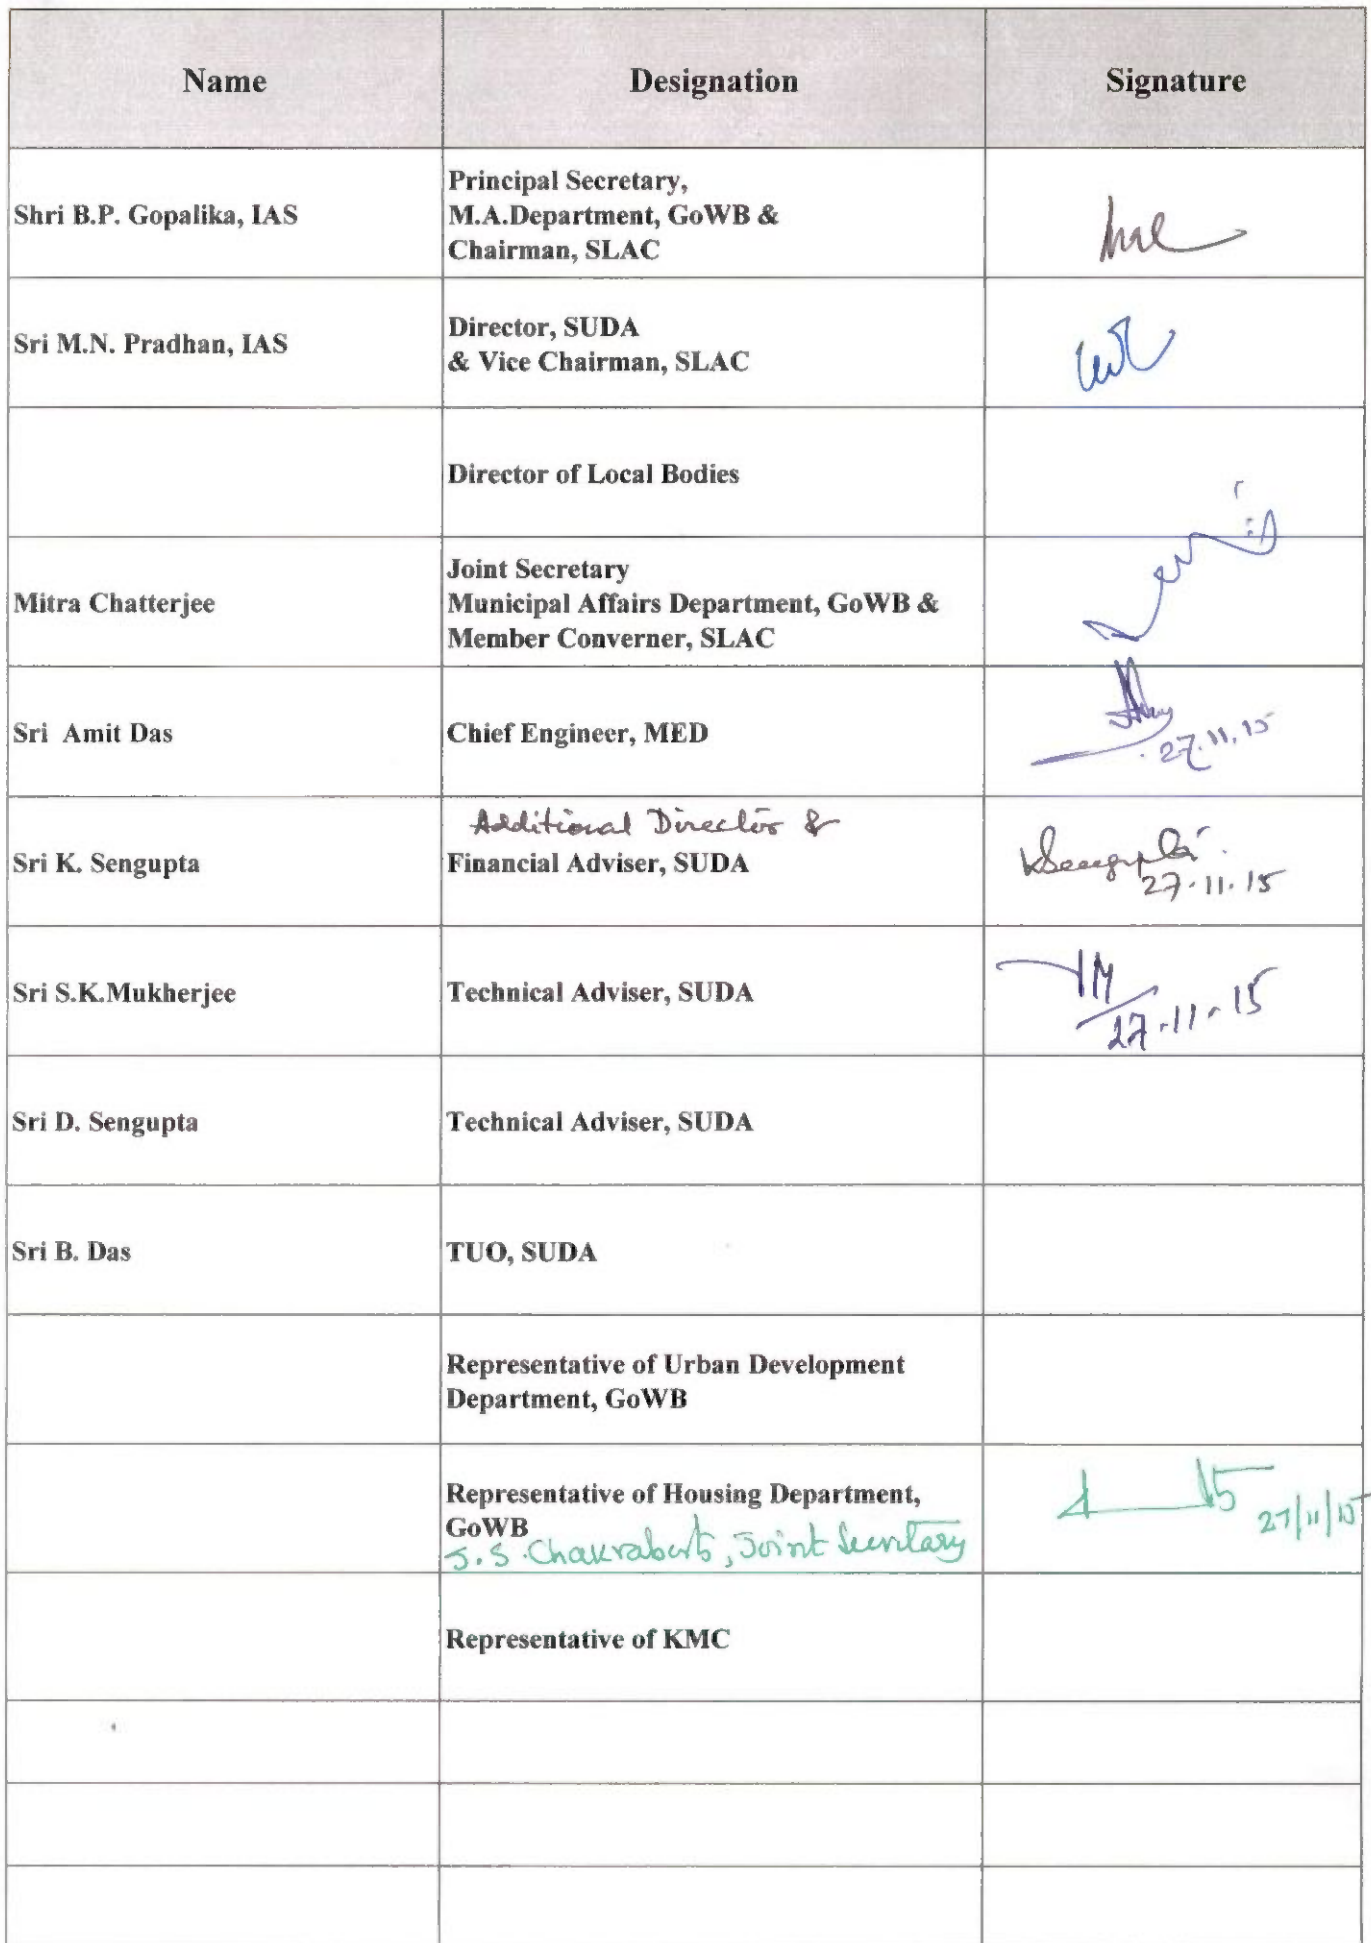 Name Designation Signature
Shri B.P. Gopalika, IAS
Principal Secretary,
M.A.Department, GoWB &
Chairman, SLAC
Sri M.N. Pradhan, IAS
Director, SUDA
& Vice Chairman, SLAC
Director of Local Bodies
Mitra Chatterjee
Joint Secretary
Municipal Affairs Department, GoWB &
Member Converner, SLAC
Sri Amit Das
Chief Engineer, MED
27.11.15
Sri K. Sengupta
Additional Director &
Financial Adviser, SUDA
KSengupta
27.11.15
Sri S.K.Mukherjee
Technical Adviser, SUDA
27.11.15
Sri D. Sengupta
Technical Adviser, SUDA
Sri B. Das
TUO, SUDA
Representative of Urban Development
Department, GoWB
Representative of Housing Department,
GoWB
S.S. Chakraborti, Joint Secretary
27/11/15
Representative of KMC